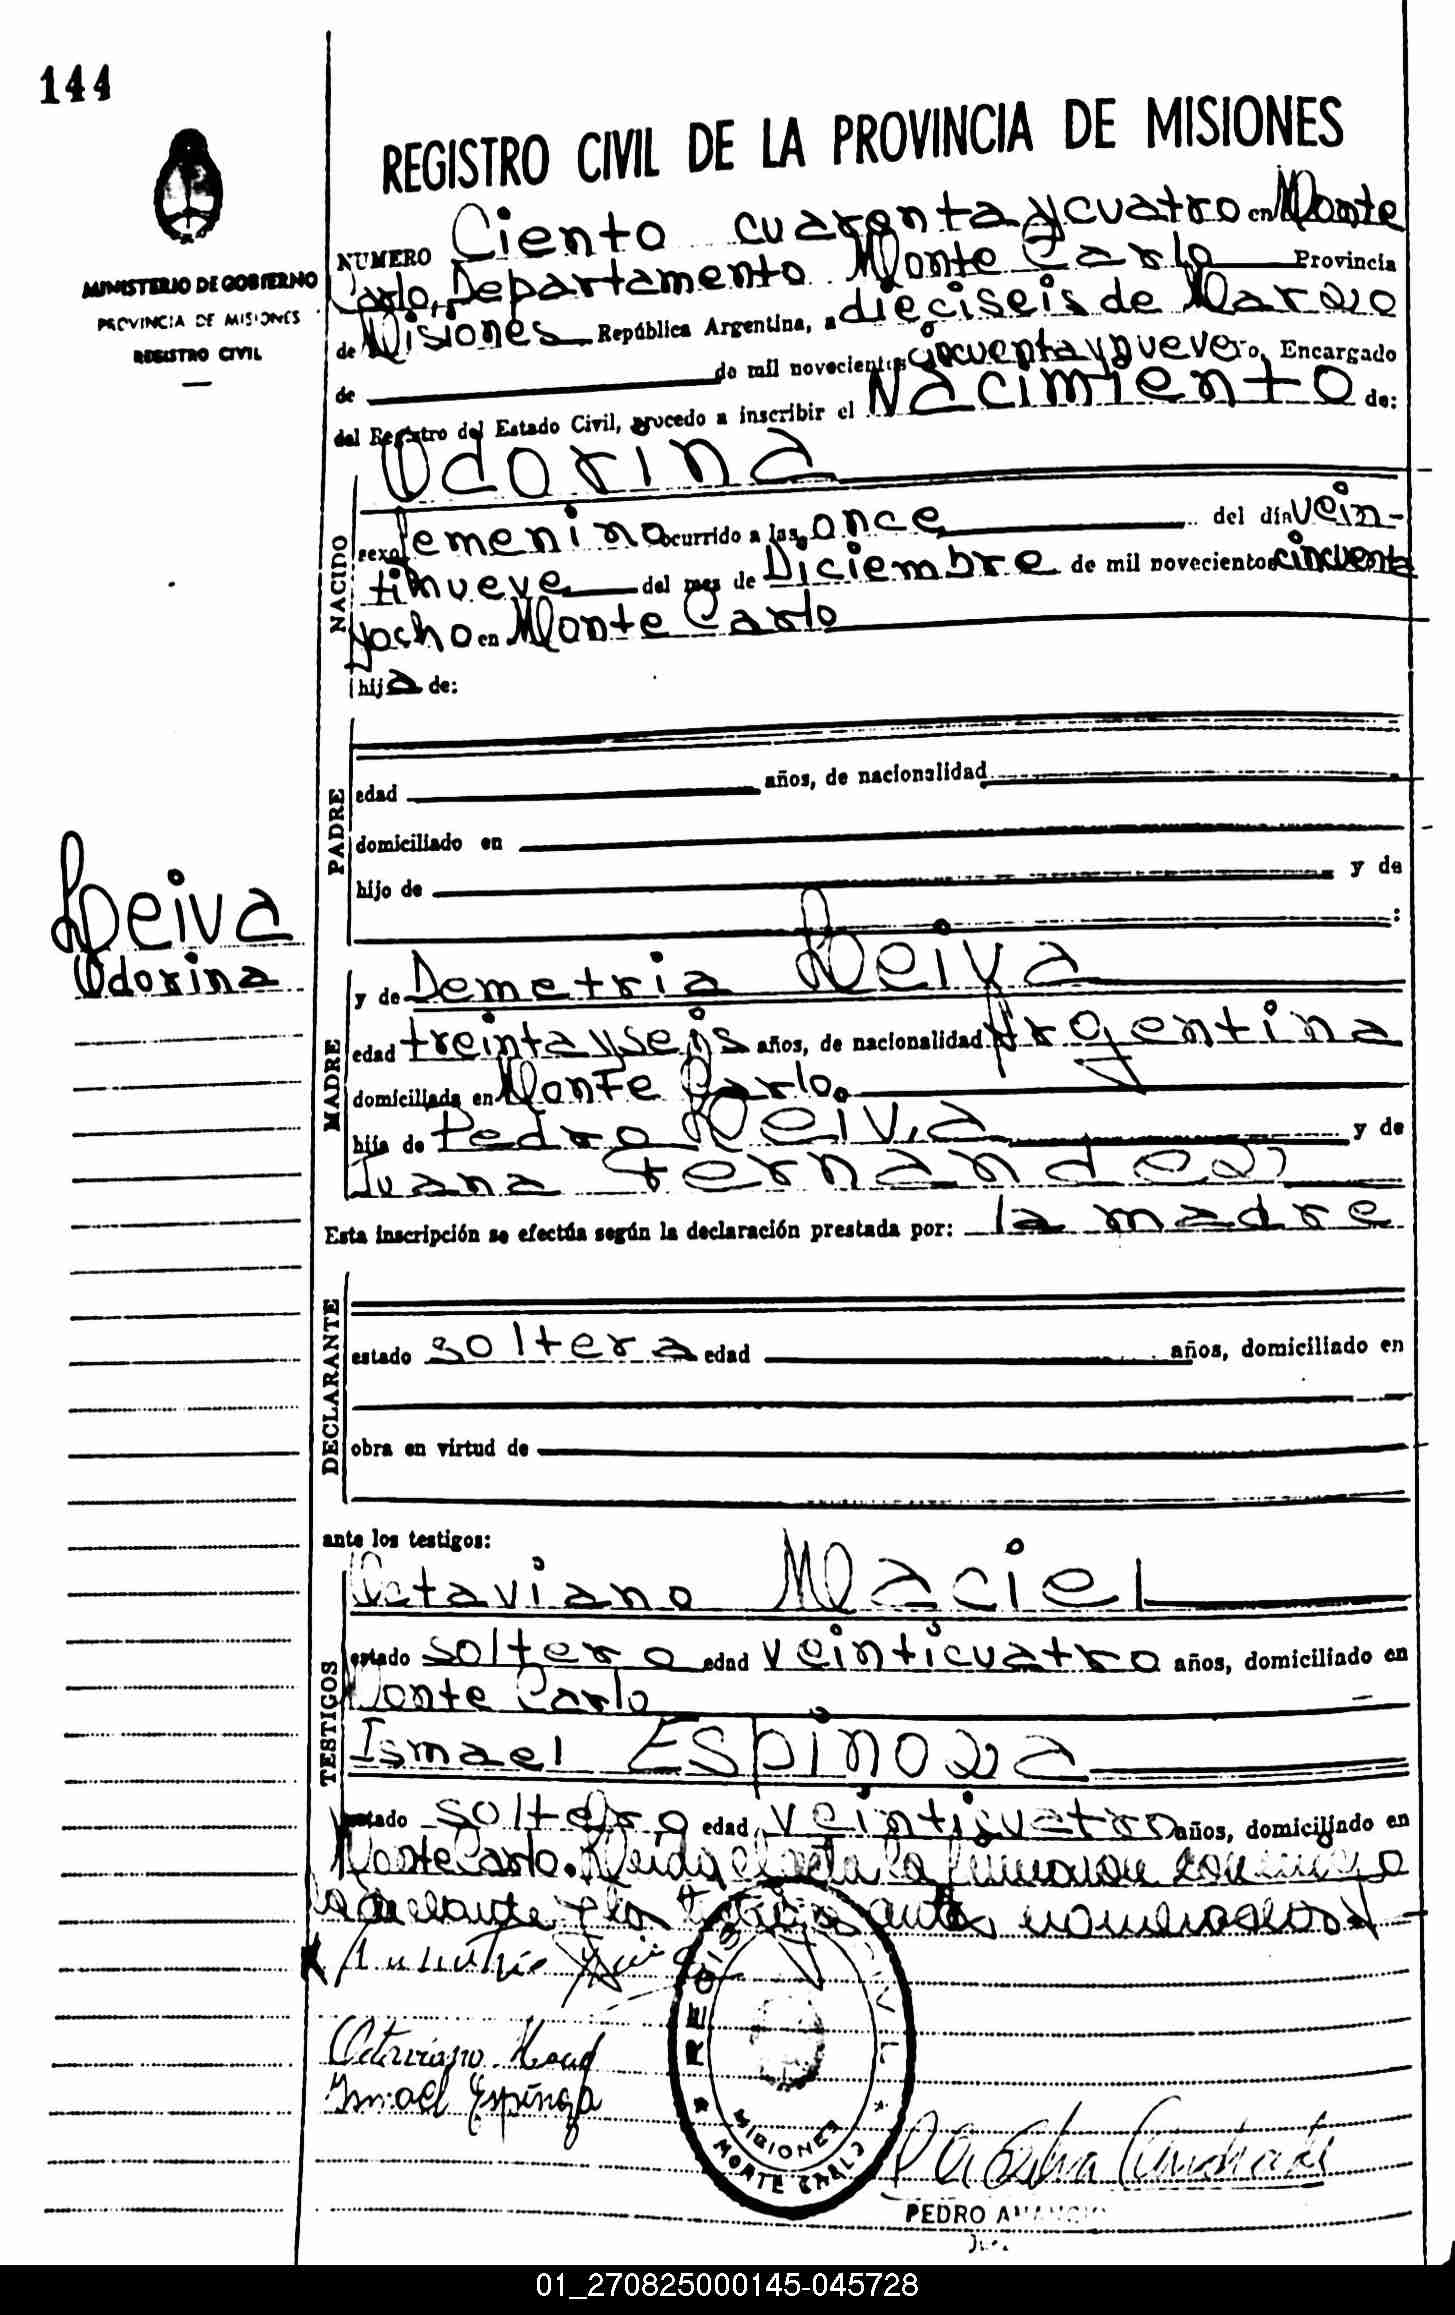 144
REGISTRO CIVIL DE LA PROVINCIA DE MISIONES
MINISTERIO DE GOBIERNO
PROVINCIA DE MISIONES
REGISTRO CIVIL
NUMERO Ciento cuarenta y cuatro en Monte
Carlo, Departamento Monte Carlo Provincia
de Misiones República Argentina, a dieciseis de Marzo
de de mil novecientos cincuenta y nueve Yo, Encargado
del Registro del Estado Civil, procedo a inscribir el Nacimiento de:
NACIDO
Odorina
sexo femenino ocurrido a las once del día vein-
tinueve del mes de Diciembre de mil novecientos cincuenta
y ocho en Monte Carlo
hija de:
PADRE
edad años, de nacionalidad
domiciliado en
hijo de y de
:
Leiva
Odorina
MADRE
y de Demetria Leiva
edad treinta y seis años, de nacionalidad Argentina
domiciliada en Monte Carlo.
hija de Pedro Leiva y de
Juana Fernandez
Esta inscripción se efectúa según la declaración prestada por: la madre
DECLARANTE
estado soltera edad años, domiciliado en
obra en virtud de
ante los testigos:
TESTIGOS
Octaviano Maciel
estado soltero edad veinticuatro años, domiciliado en
Monte Carlo
Ismael Espinoza
estado soltero edad veinticuatro años, domiciliado en
Monte Carlo. Leida el acta la firmaron conmigo
la declarante y los testigos antes nombrados.
Octaviano
Ismael Espinoza
REGIS VIL
MISIONES
MONTE CARLO
PEDRO
01_270825000145-045728